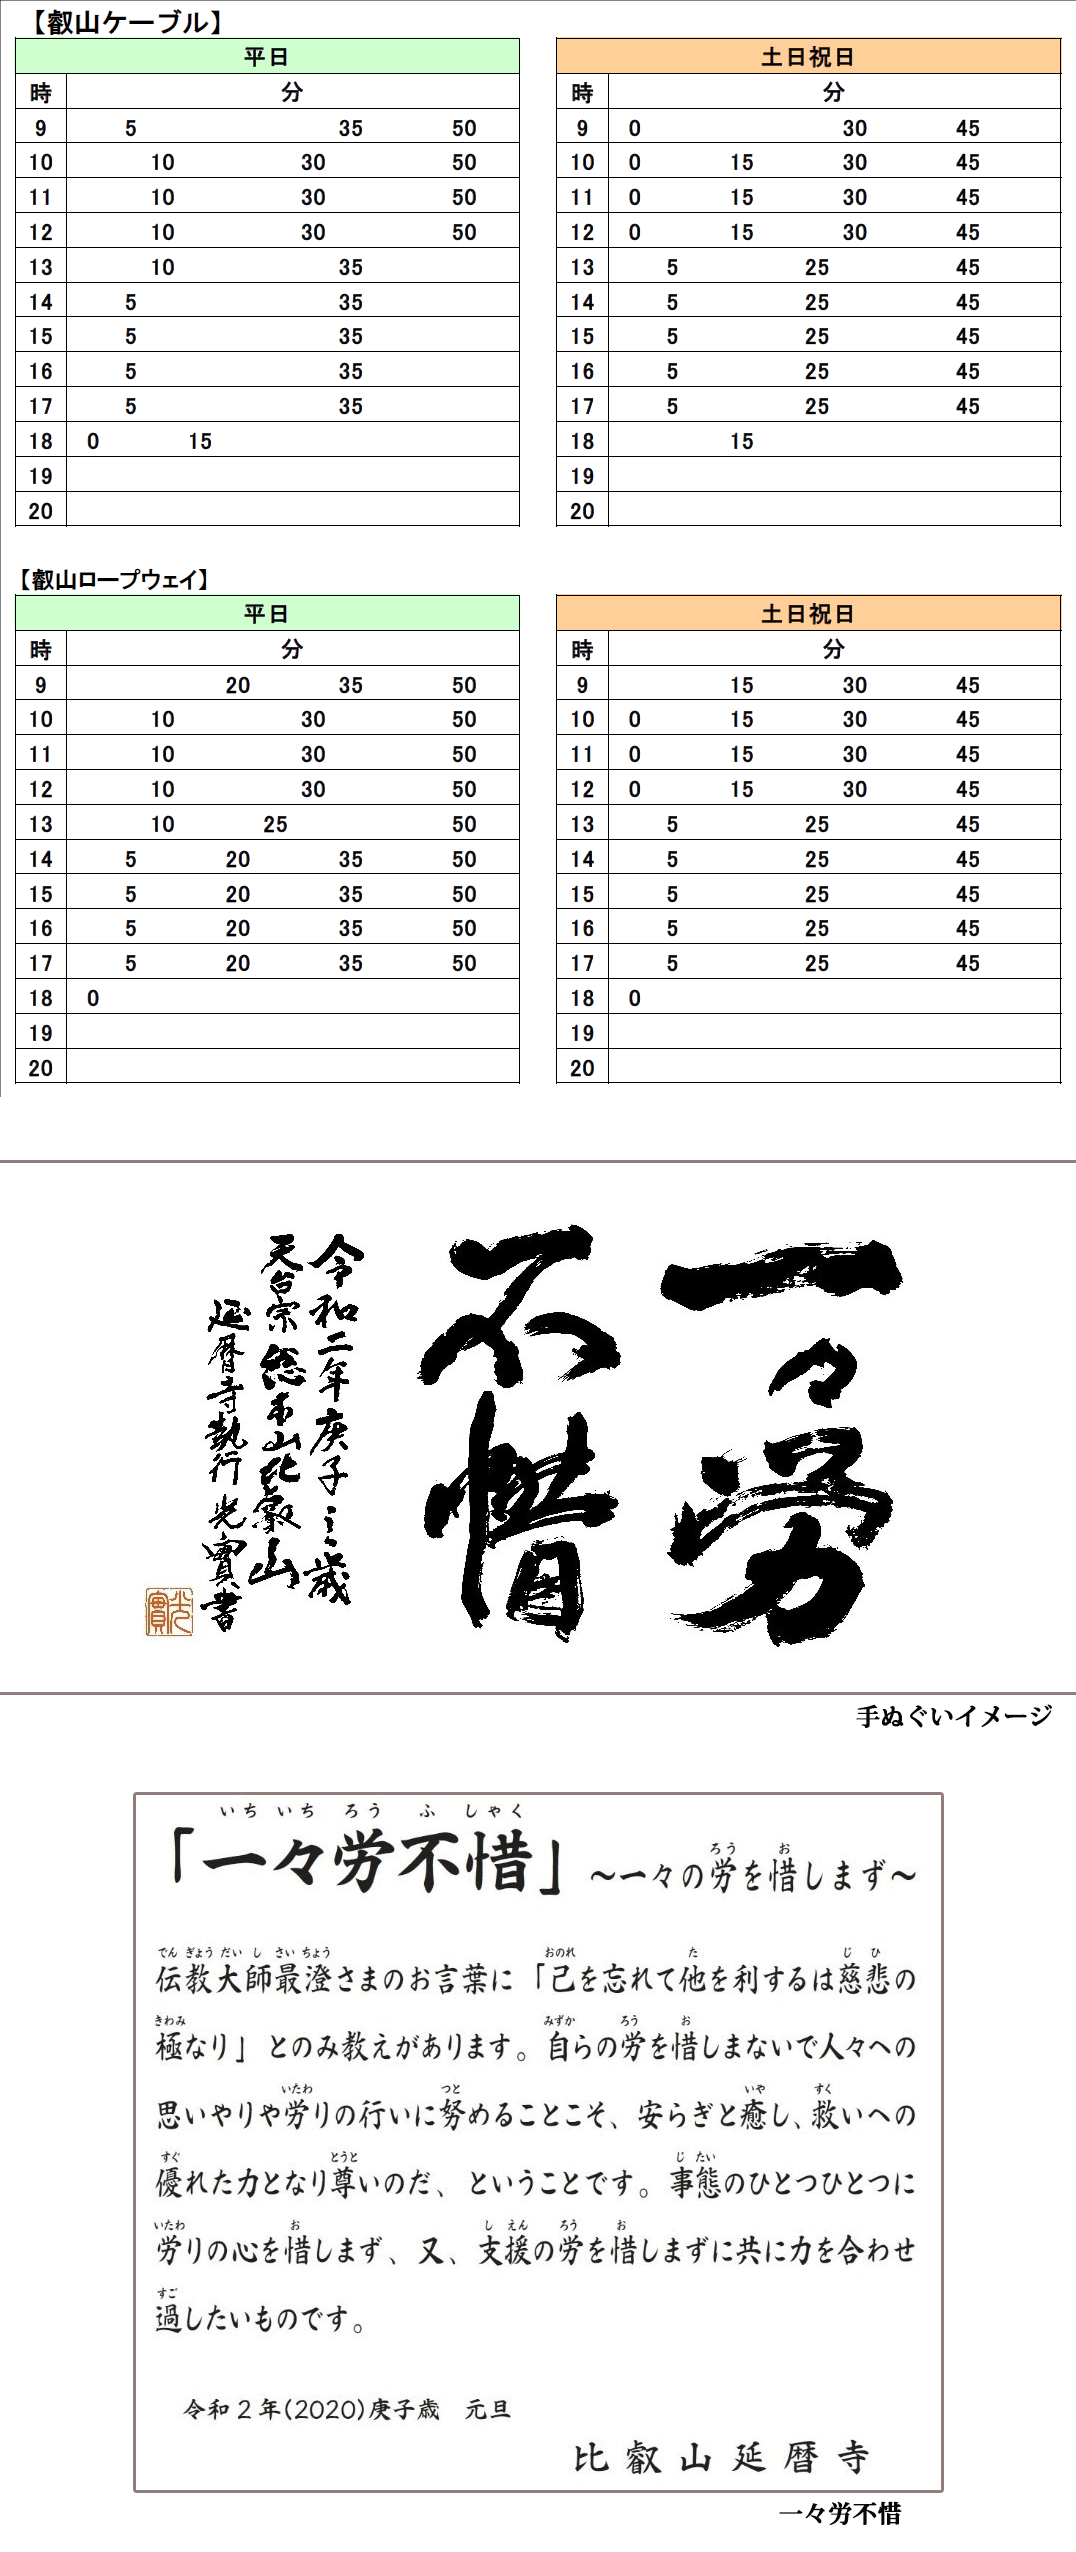 【叡山ケーブル】
平日
時 分
9 5 35 50
10 10 30 50
11 10 30 50
12 10 30 50
13 10 35
14 5 35
15 5 35
16 5 35
17 5 35
18 0 15
19
20
土日祝日
時 分
9 0 30 45
10 0 15 30 45
11 0 15 30 45
12 0 15 30 45
13 5 25 45
14 5 25 45
15 5 25 45
16 5 25 45
17 5 25 45
18 15
19
20
【叡山ロープウェイ】
平日
時 分
9 20 35 50
10 10 30 50
11 10 30 50
12 10 30 50
13 10 25 50
14 5 20 35 50
15 5 20 35 50
16 5 20 35 50
17 5 20 35 50
18 0
19
20
土日祝日
時 分
9 15 30 45
10 0 15 30 45
11 0 15 30 45
12 0 15 30 45
13 5 25 45
14 5 25 45
15 5 25 45
16 5 25 45
17 5 25 45
18 0
19
20
一々労
不惜
令和二年庚子之歳
天台宗総本山比叡山
延暦寺執行光實書
光實
手ぬぐいイメージ
いちいちろうふしゃく
「一々労不惜」
ろう お
～一々の労を惜しまず～
でんぎょうだいしさいちょう おのれ た じひ
伝教大師最澄さまのお言葉に「己を忘れて他を利するは慈悲の
きわみ みずか ろう お
極なり」とのみ教えがあります。自らの労を惜しまないで人々への
いたわ つと いや すく
思いやりや労りの行いに努めることこそ、安らぎと癒し、救いへの
すぐ とうと じたい
優れた力となり尊いのだ、ということです。事態のひとつひとつに
いたわ お しえん ろう お
労りの心を惜しまず、又、支援の労を惜しまずに共に力を合わせ
すご
過したいものです。
令和2年(2020)庚子歳 元旦
比叡山延暦寺
一々労不惜